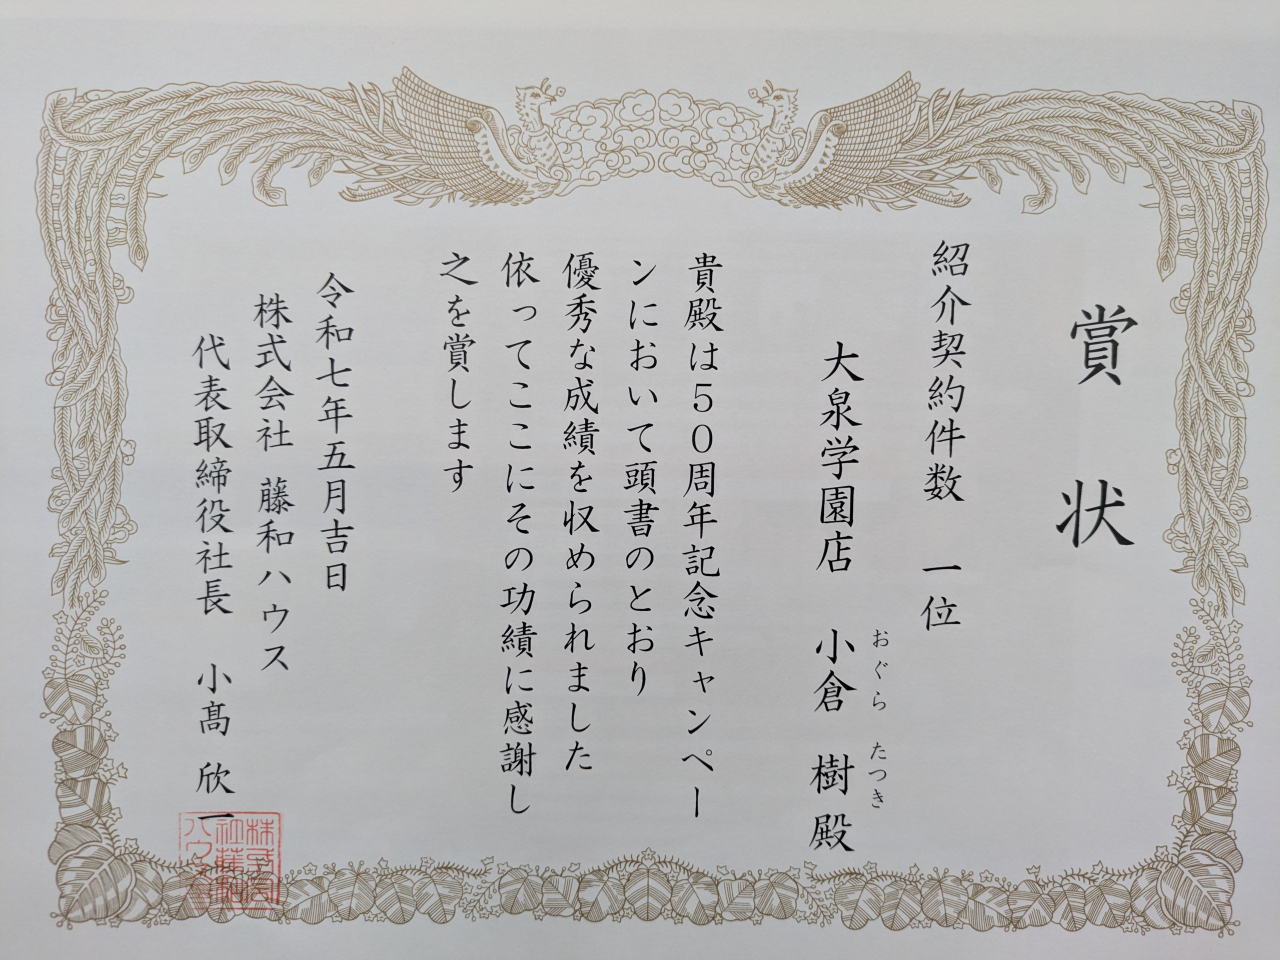 賞状
紹介契約件数　一位
大泉学園店　小倉　樹殿
おぐら　たつき
貴殿は５０周年記念キャンペー
ンにおいて頭書のとおり
優秀な成績を収められました
依ってここにその功績に感謝し
之を賞します
令和七年五月吉日
株式会社　藤和ハウス
代表取締役社長　小髙　欣一
株式会
社藤和
ハウス